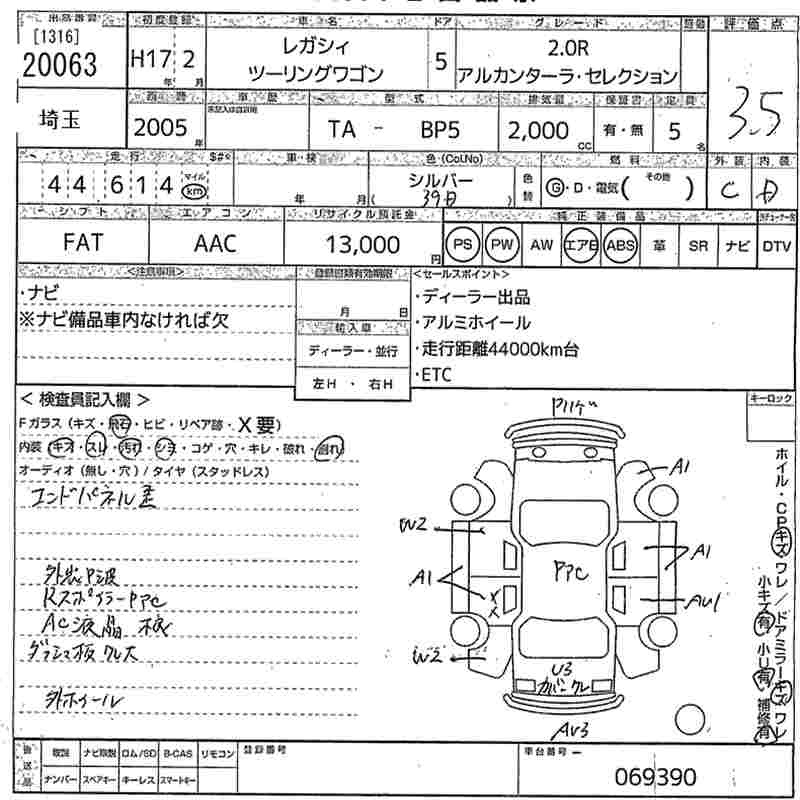 出品番号 初度登録 車名 ドア グレード 評価点
[1316] 20063
H17 2 年 月
レガシィ ツーリングワゴン
5
2.0R アルカンターラ・セレクション
3.5
埼玉
西暦 車歴 型式 排気量 保証書 定員
2005年
TA - BP5
2,000 cc
有・無
5 名
走行 車・検 色(Col.No) 燃料 外装 内装
44614 マイル km
年 月
シルバー
39D
色替
G・D・電気( その他 )
C D
シフト エアコン リサイクル預託金 純正装備品
FAT AAC 13,000 円
PS PW AW エアB ABS 革 SR ナビ DTV
<注意事項> 登録書類有効期限 <セールスポイント>
・ナビ
※ナビ備品車内なければ欠
月 日
輸入車
ディーラー・並行
左H ・ 右H
・ディーラー出品
・アルミホイール
・走行距離44000km台
・ETC
<検査員記入欄>
Fガラス(キズ・飛石・ヒビ・リペア跡・X要)
内装(キズ・スレ・汚れ・シミ・コゲ・穴・キレ・破れ・割れ)
オーディオ(無し・穴)/タイヤ(スタッドレス)
エンドパネル歪
RスポイラーPPC
AC液晶
外ホイール
キーロック
A1
W2
A1
A1
PPC
AU1
W2
U3
AU3
ホイール・CPキズワレ/ドアミラーキズワレ
小キズ有 小U有 補修有
取説 ナビ取説 ロム/SD B-CAS リモコン
ナンバー スペアキー キーレス スマートキー
登録番号
車台番号 ー
069390